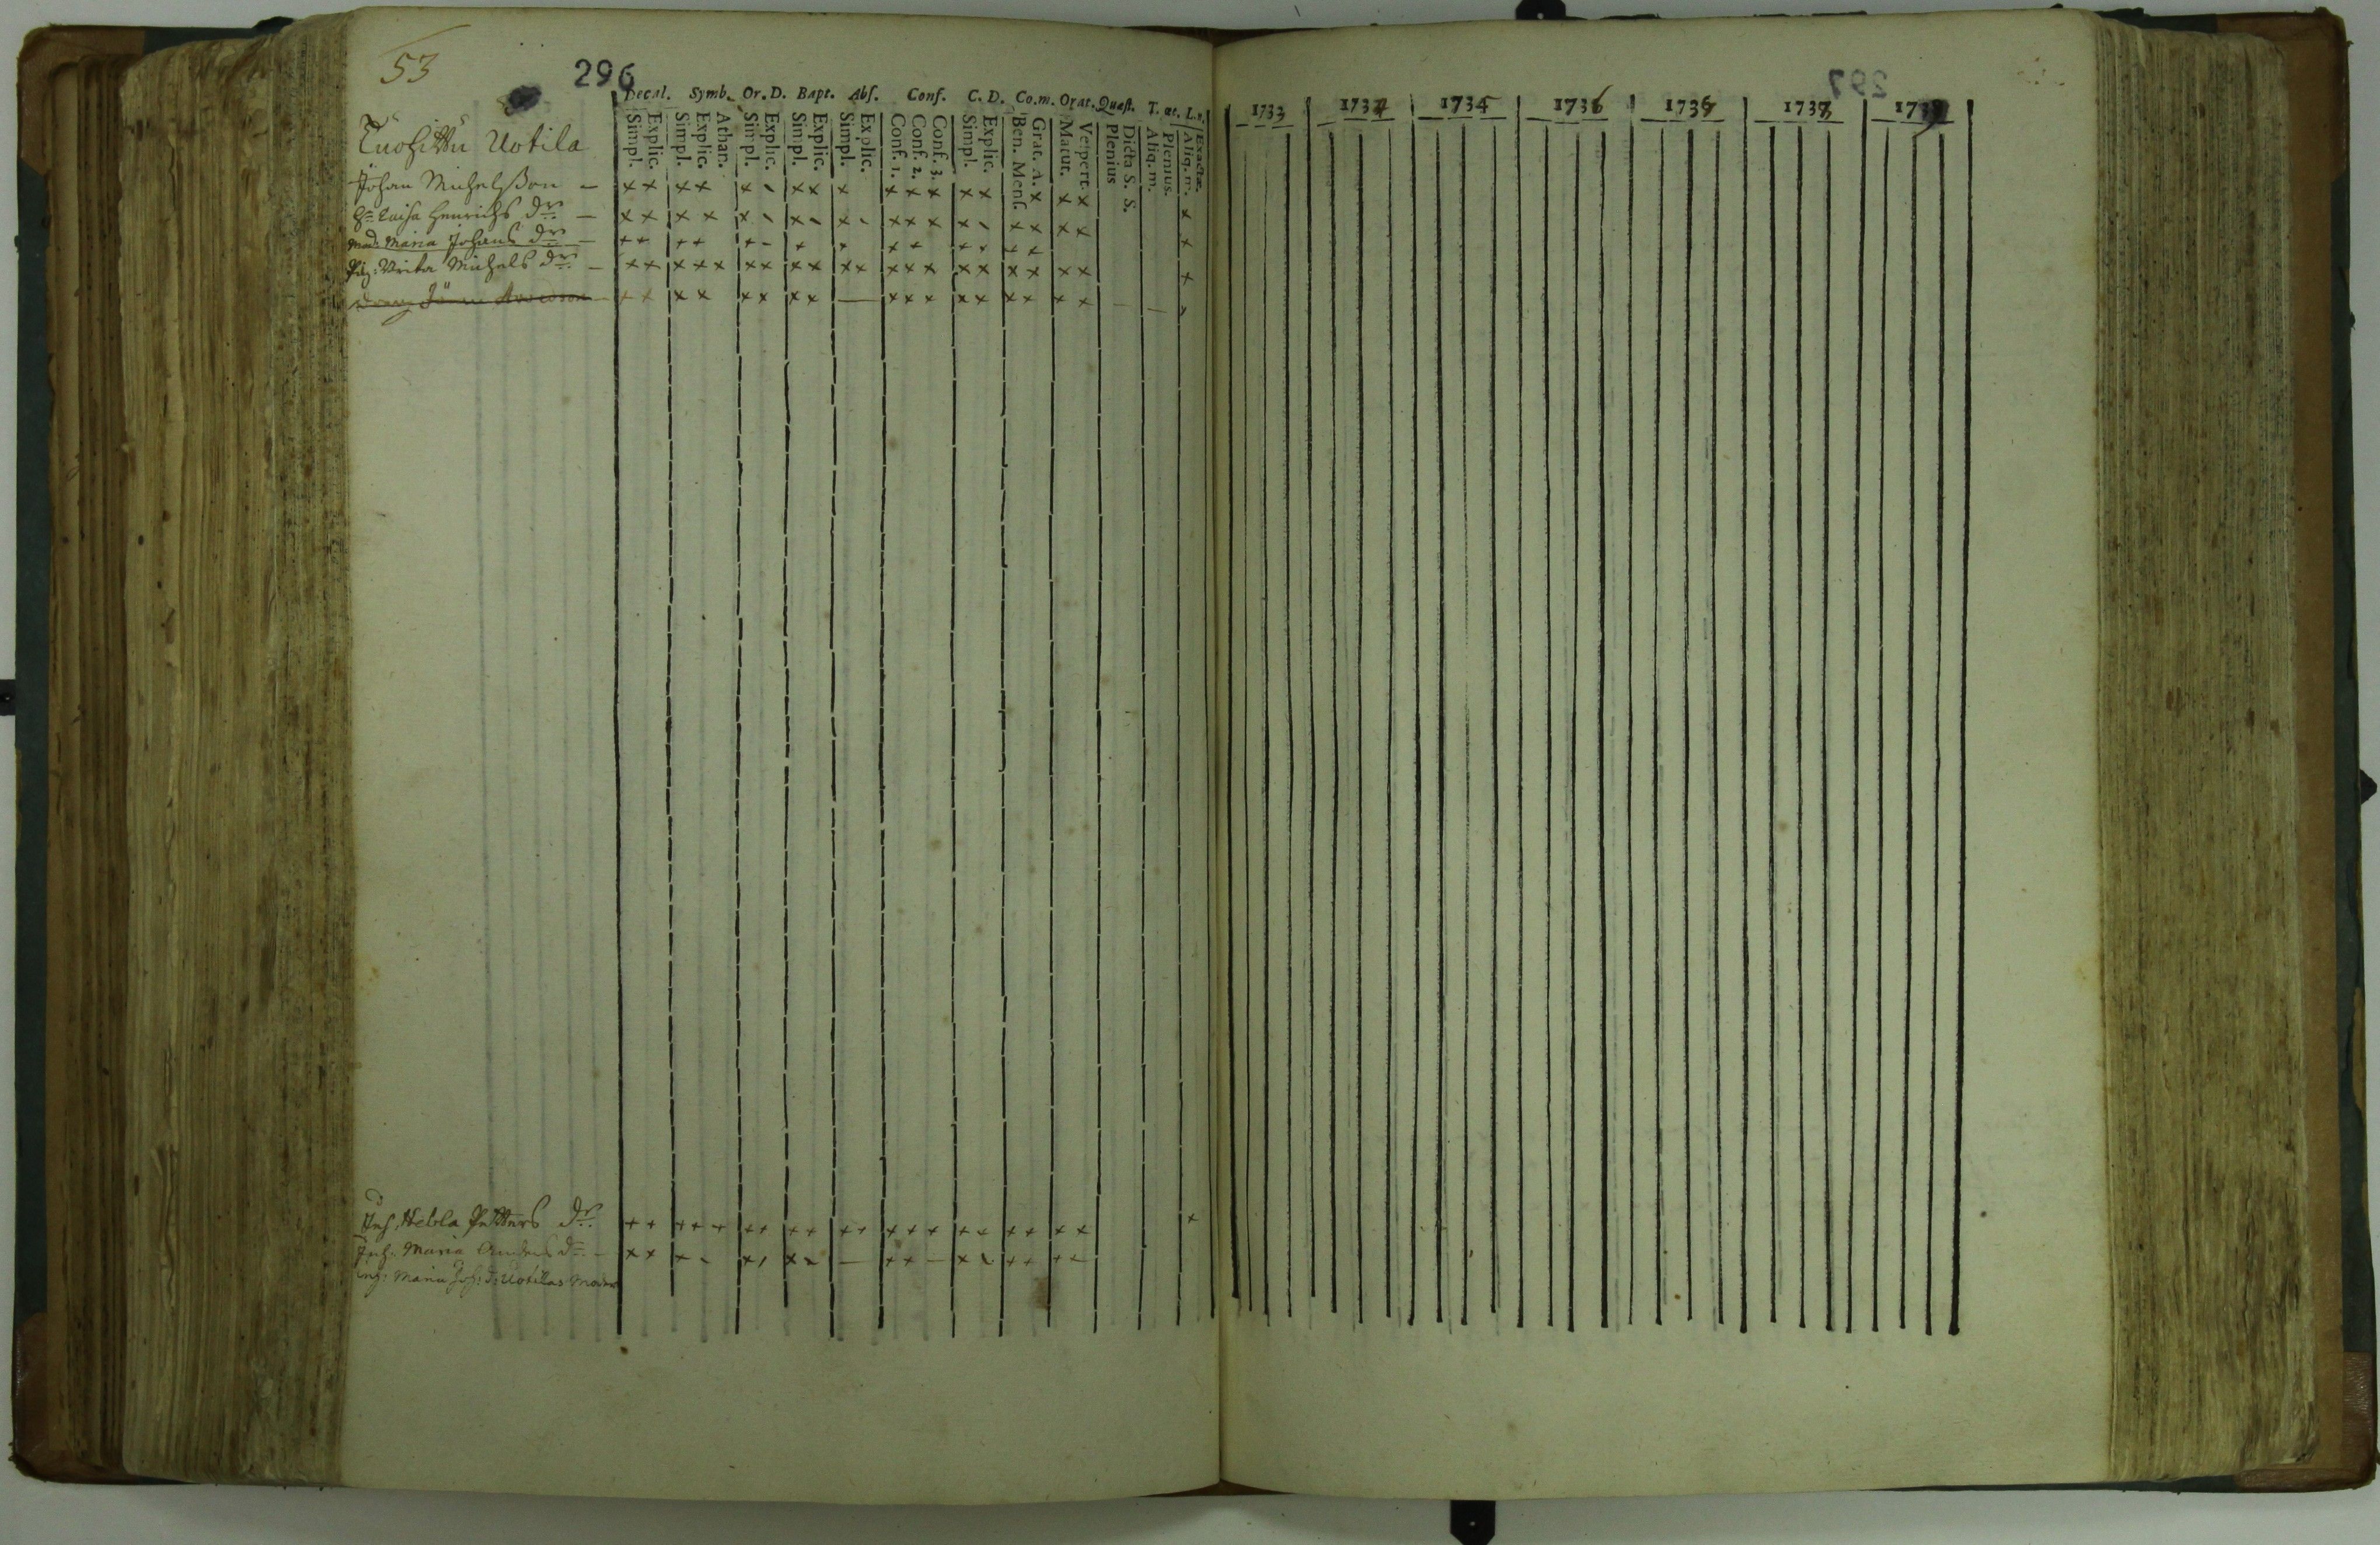 53
296
Decal. Symb. Or. D. Bapt. Abs. Conf. C. D. Co.m. Orat. Quæst. T. æt. L.n.
Simpl. Explic. Simpl. Explic. Athan. Simpl. Explic. Simpl. Explic. Simpl. Explic. Conf. 1. Conf. 2. Conf. 3. Simpl. Explic. Ben. Mens. Grat. A. Matut. Vespert. Plenius Dicta S. S. Aliq. m. Plenius. Aliq. m. Exactæ.
Tuohittu Uotila
Johan Michelsson – x x x x x - x x x x x x x x x x x x
H: Luisa Henrichs dr – x x x x x - x - x - x x x x - x x x x x
mod: Maria Johans dr – x x x x x - x x x x x x x x x
Pig: Brita Michels dr – x x x x x x x x x x x x x x x x x x x x x
x x x x x x x x – x x x x x x x x x – –
Inh: Hebla Petters dr. x x x x x x x x x x x x x x x x x x x x x
Inh: Maria Anders dr – x x x - x x – x x – x x x x x
inh: Maria Joh: d: Uotilas moder
297
1733 1734 1734 1736 1736 1737